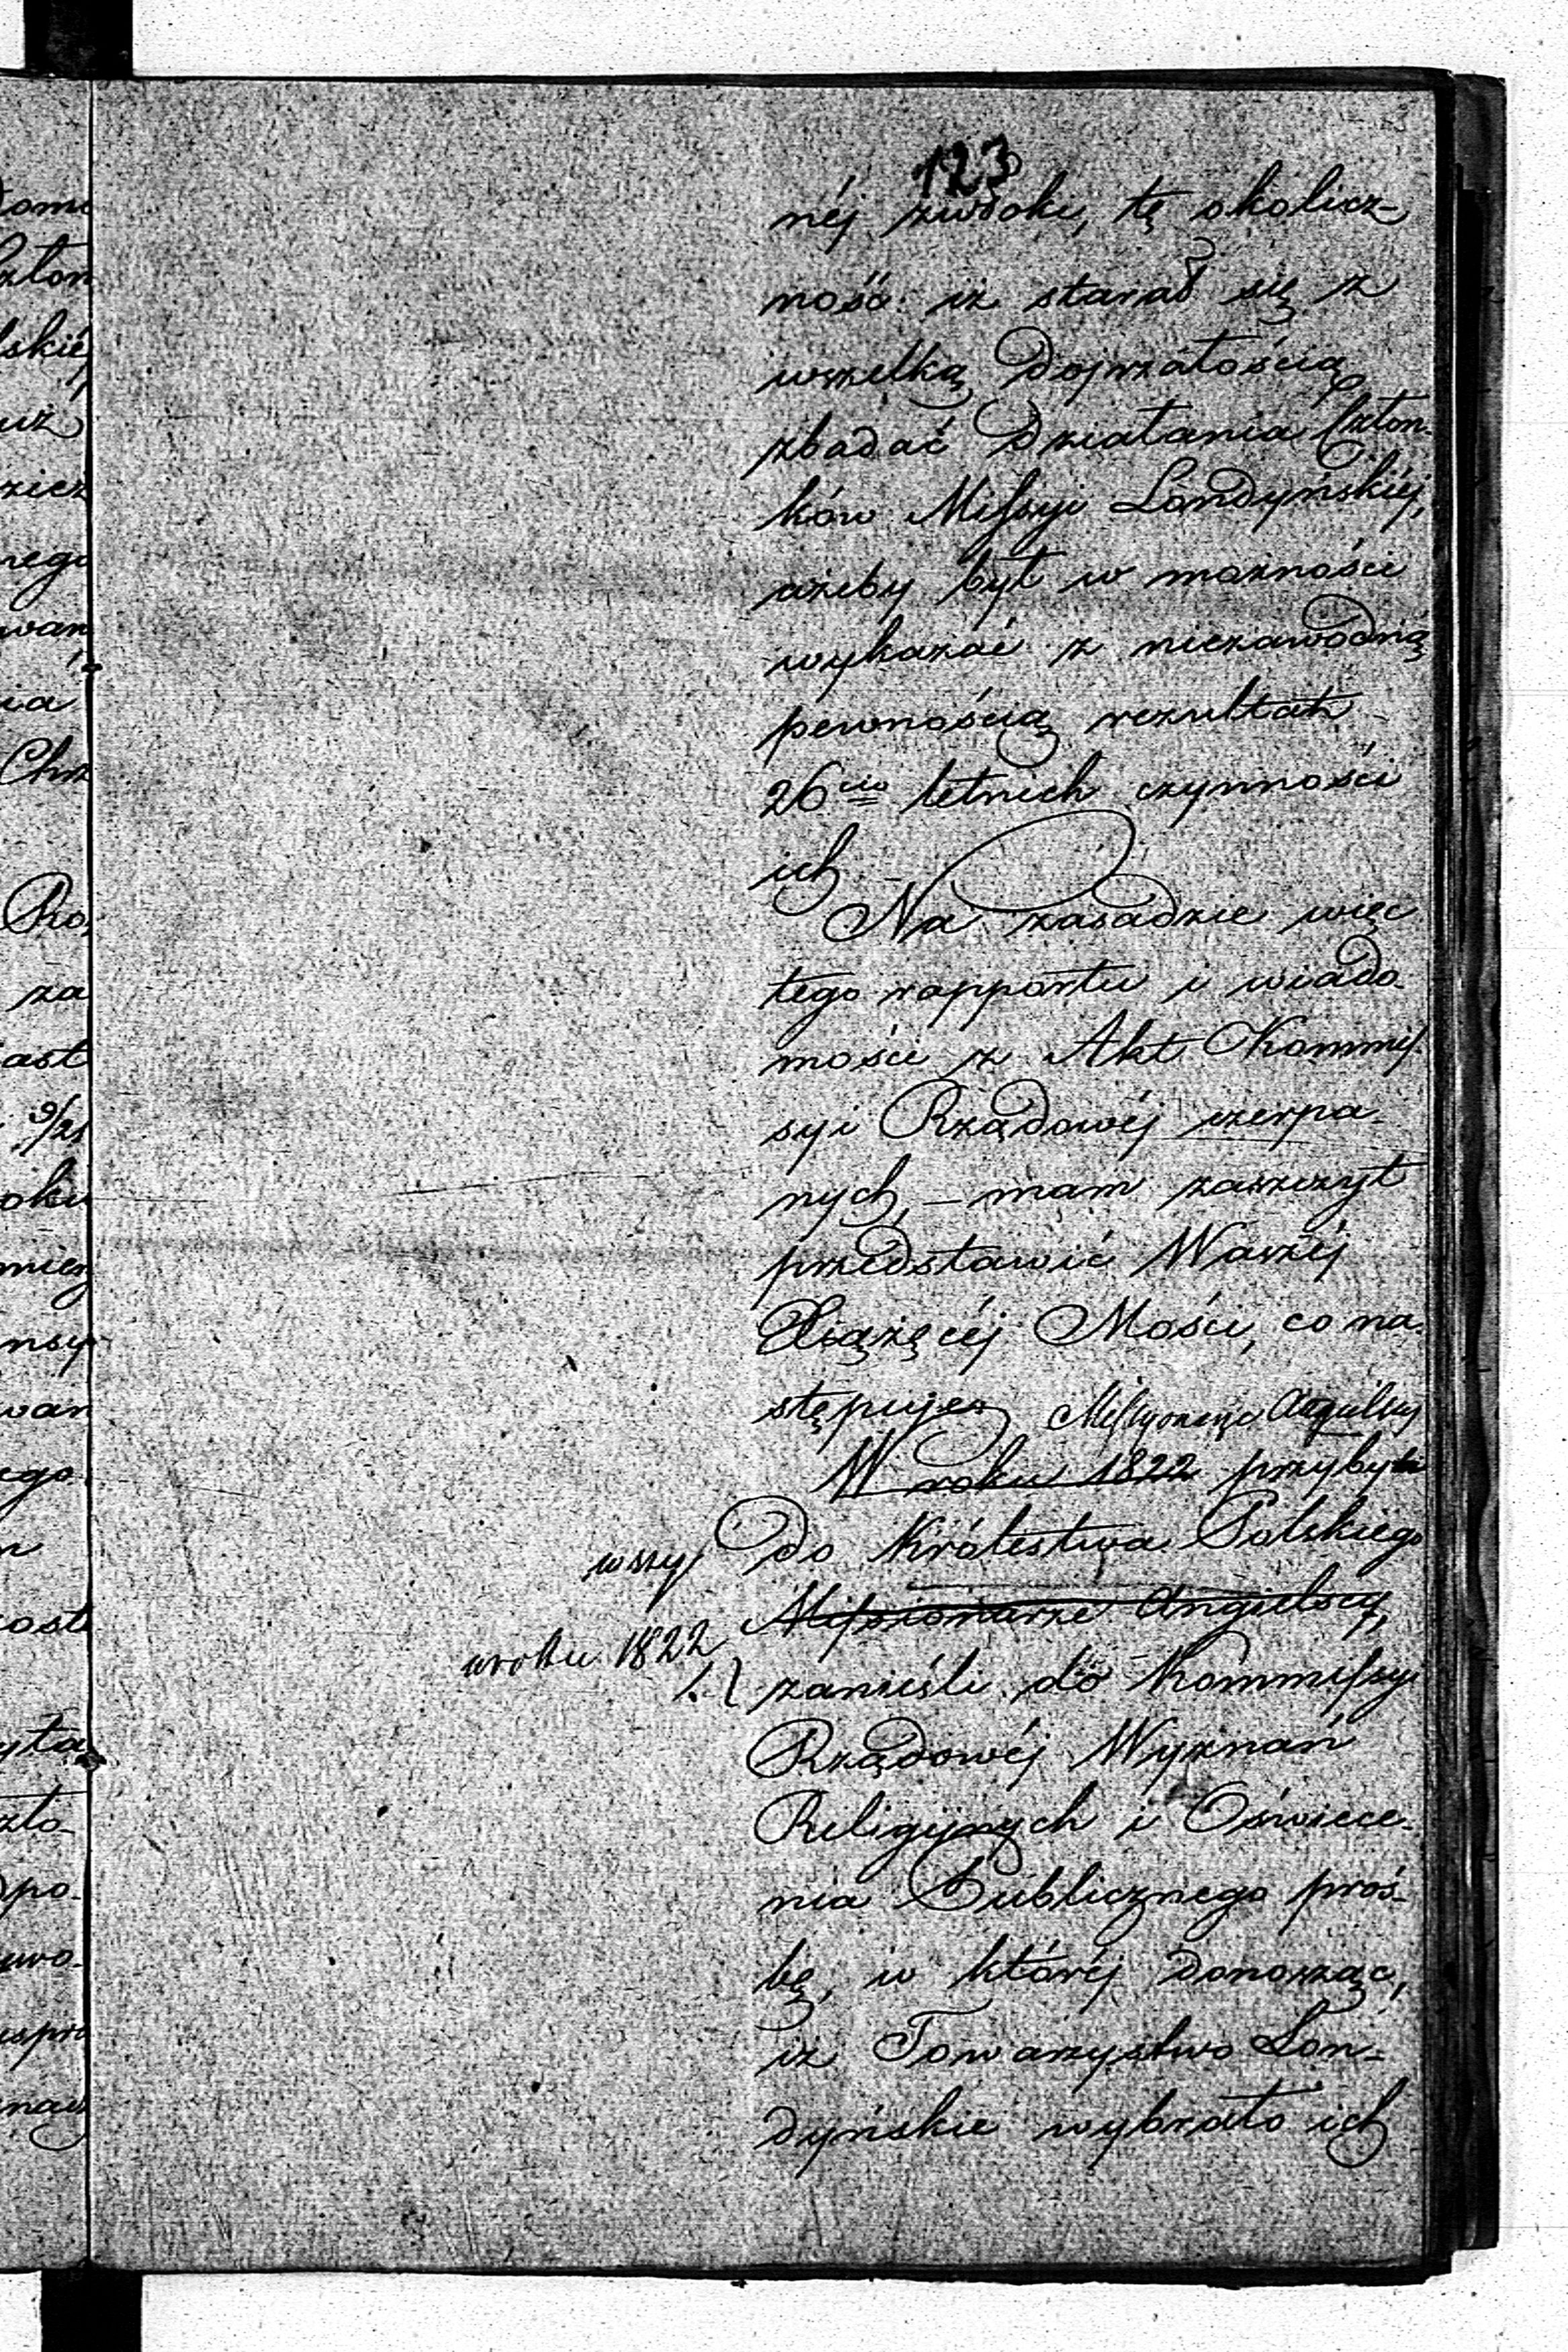 123
néj zwłoki, tę okolicz-
ność: iż starał się z
wszelką dojrzałością
zbadać działania Człon-
ków Missyi Londyńskiéj,
ażeby był w możności
wykazać z niezawodną
pewnością rezultat
26cio letnich czynności
ich. –
Na zasadzie więc
tego rapportu i wiado-
mości z Akt Kommis-
syi Rządowéj czerpa-
nych, – mam zaszczyt
przedstawić Waszéj
Xiążęcéj Mości, co na-
stępuje:
Missyonarze Angielscy
W roku 1822 przyby
wszy/ do Królestwa Polskiego
Missionarze Angielscy,
w roku 1822
zanieśli do Kommissyi
Rządowéj Wyznań
Religijnych i Oświece-
nia Publicznego proś-
bę, w któréj donosząc,
iż Towarzystwo Lon-
dyńskie wybrało ich
domi
człon
lskiéj
już
nego
wan
ia
Chrz
Ro,
za
iast
9/21
oku
nsy
wan
ego
n
zosta
yta
zło-
po-
wo-
spra